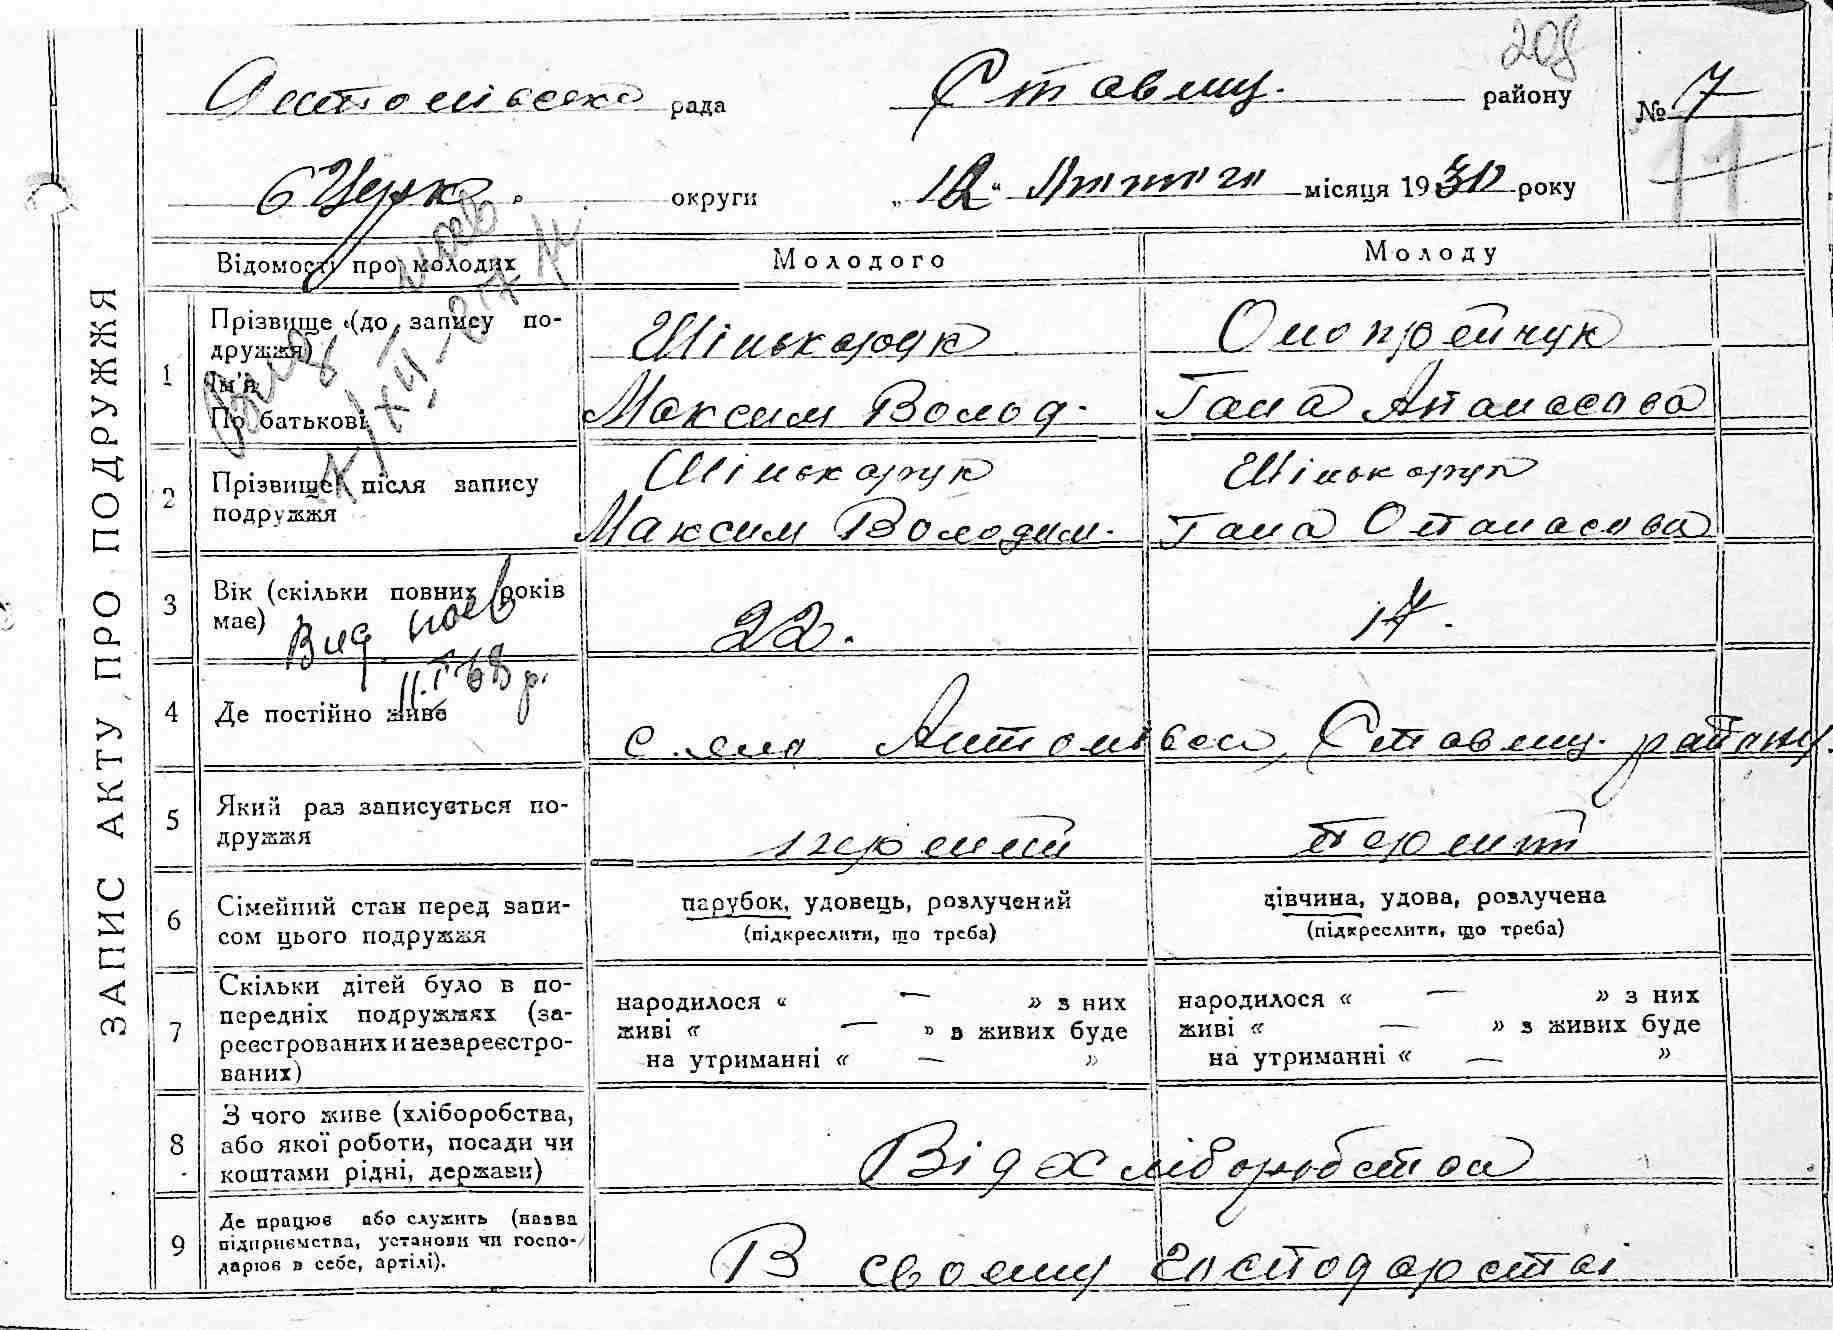 208
Антонівська рада Ставищ. району № 7
11
бЦерк. округи „12“ Лютого місяця 1930 року
ЗАПИС АКТУ ПРО ПОДРУЖЖЯ
Відомості про молодих Молодого Молоду
1 Прізвище (до запису подружжя) Шінькарук Онопрейчук
Ім'я
По батькові Максим Волод. Гана Апанасова
2 Прізвище після запису подружжя Шінькарук Шінькарук
Максим Володим. Гана Опанасова
3 Вік (скільки повних років має) 22. 17.
Вид. пов
11.I 68 р.
4 Де постійно живе село Антонівка, Ставищ. району.
5 Який раз записується подружжя перший перший
6 Сімейний стан перед записом цього подружжя парубок, удовець, розлучений дівчина, удова, розлучена
(підкреслити, що треба) (підкреслити, що треба)
7 Скільки дітей було в попередніх подружжях (зареєстрованих и незареєстрованих) народилося « — » з них народилося « — » з них
живі « — » в живих буде живі « — » з живих буде
на утриманні « — » на утриманні « — »
8 З чого живе (хліборобства, або якої роботи, посади чи коштами рідні, держави) Від хліборобства
9 Де працює або служить (назва підприємства, установи чи господарює в себе, артілі). В своему господарстві